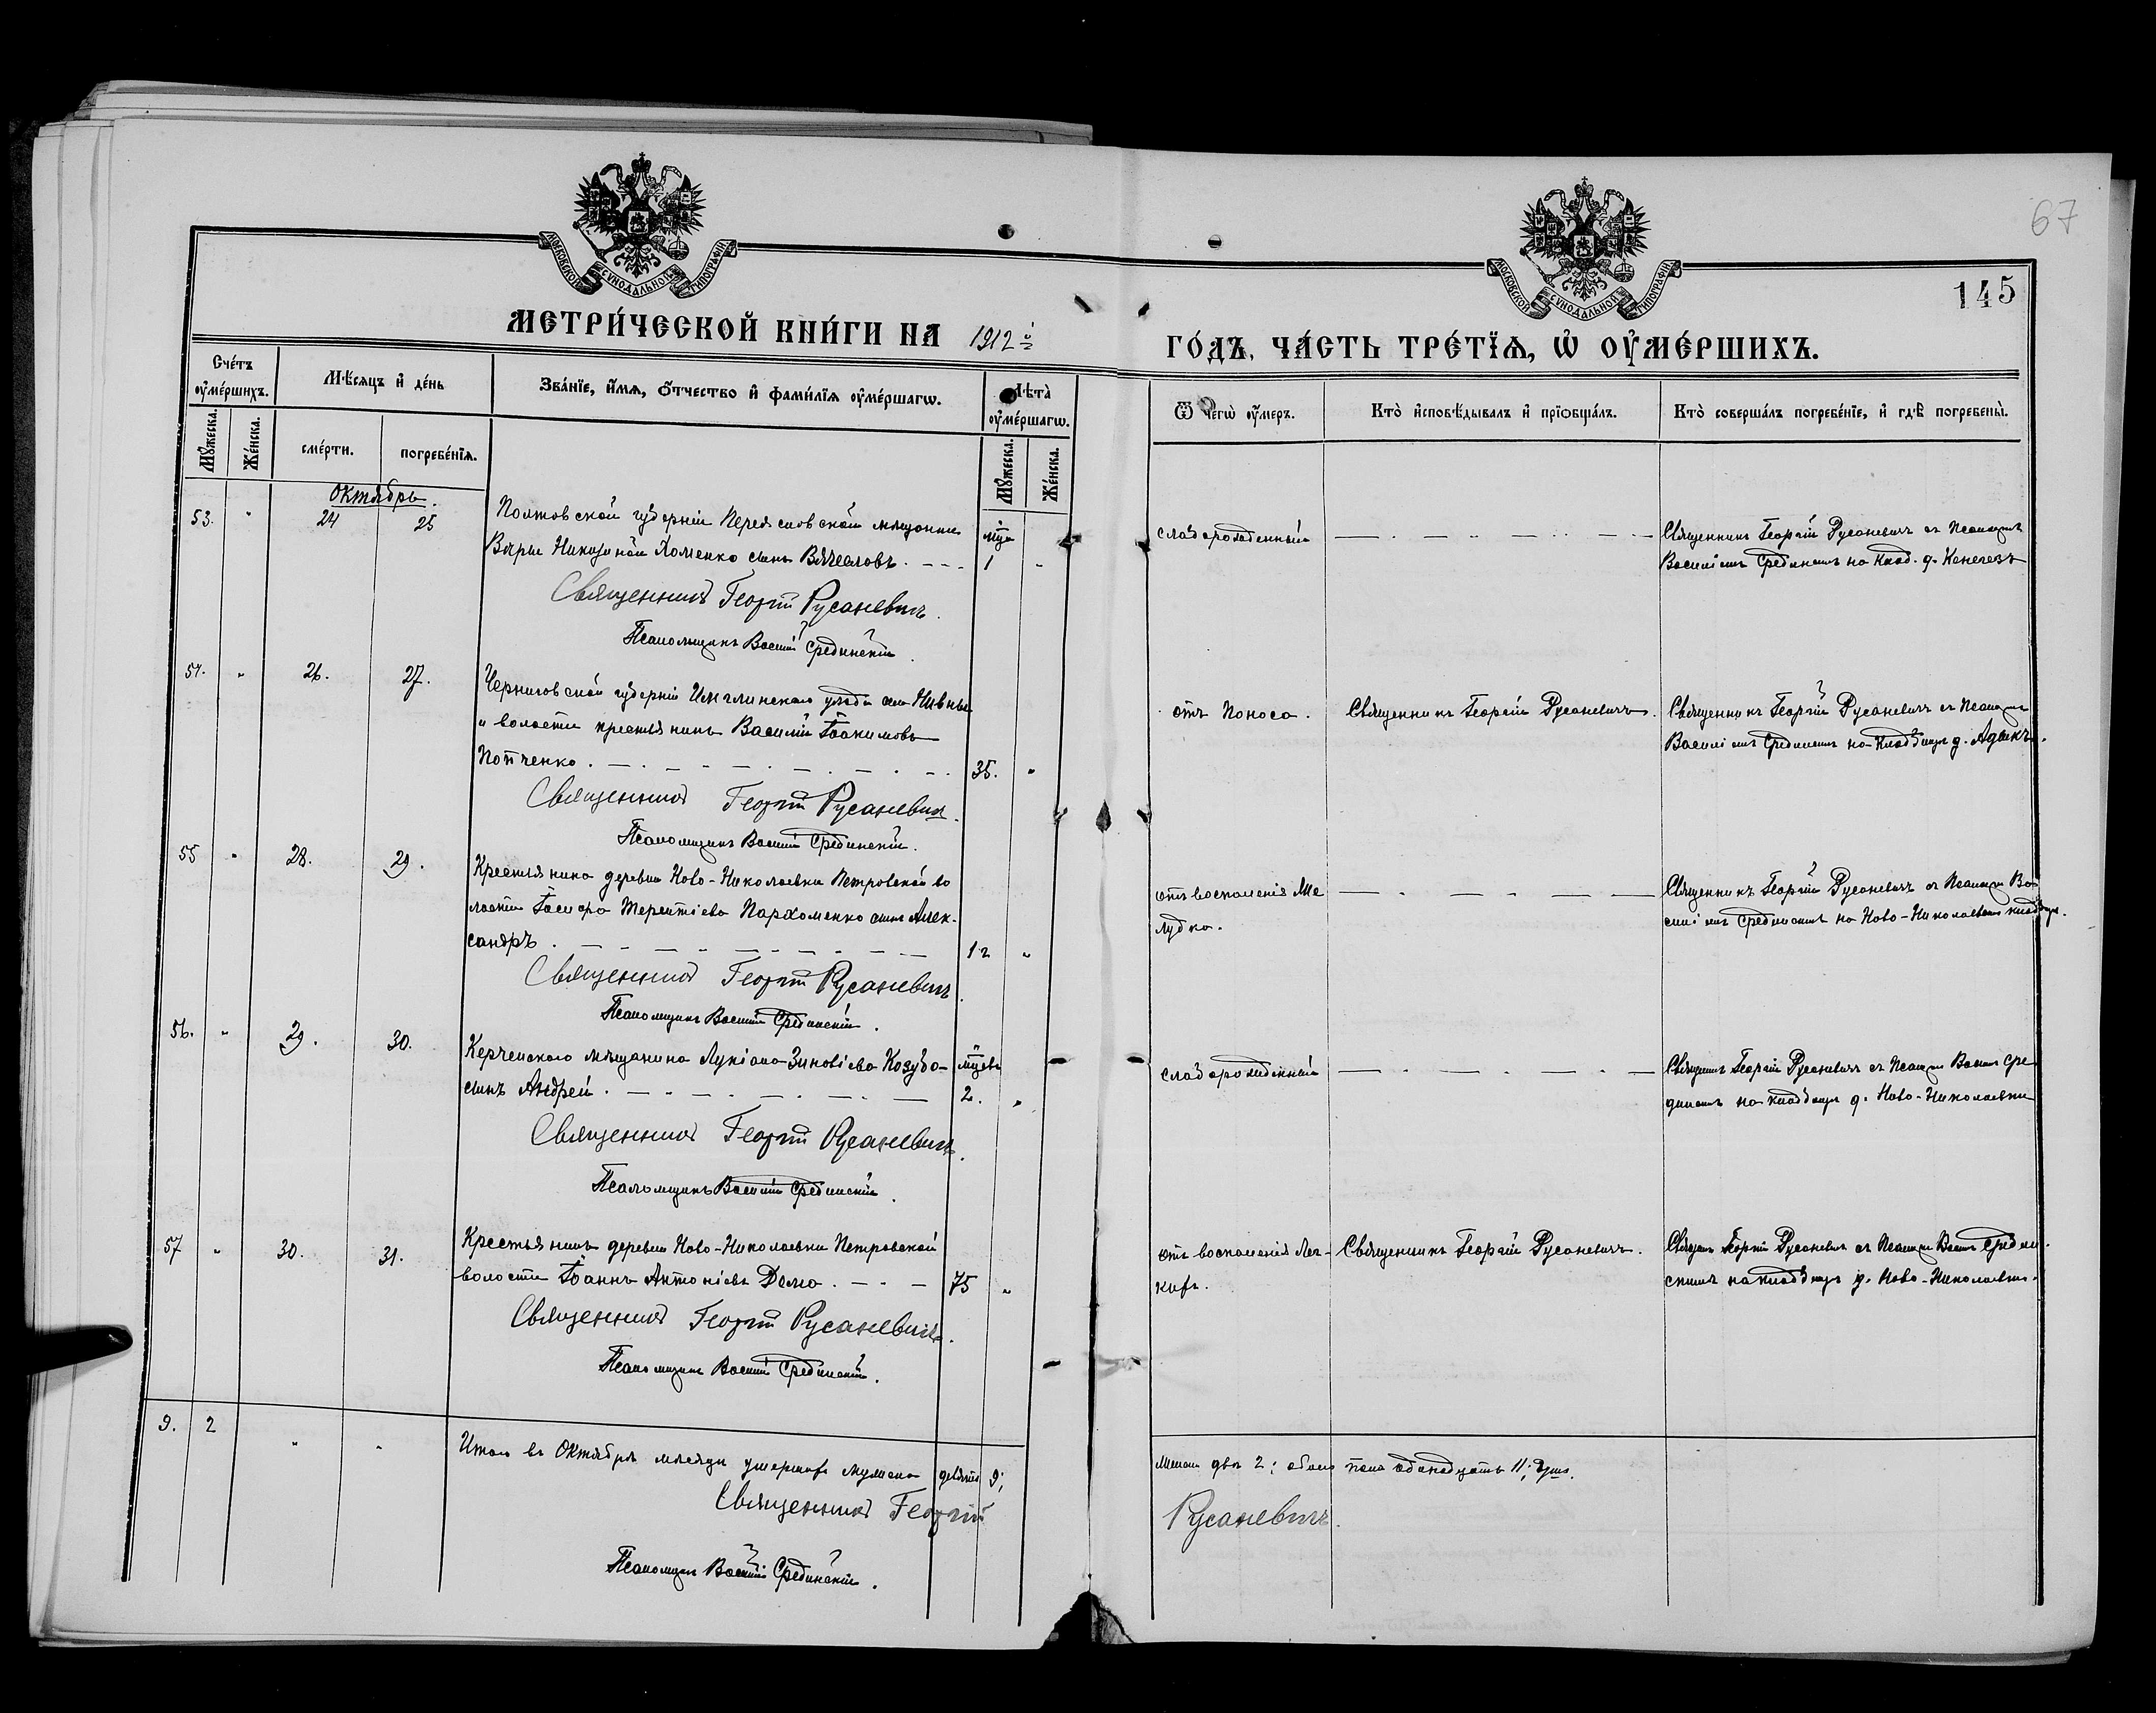 67
145
МОСКОВСКОЙ СѴНОДАЛЬНОЙ ТИПОГРАФІИ
МОСКОВСКОЙ СѴНОДАЛЬНОЙ ТИПОГРАФІИ
МЕТРИ́ЧЕСКОЙ КНИ́ГИ НА 1912й
ГО́ДЪ, ЧА́СТЬ ТРЕ́ТЇѦ, Ѡ҆ ОУ҆МЕ́РШИХЪ.
Сче́тъ оу҆ме́ршихъ.
Мѣ́сяцъ и҆ де́нь
Зва́нїе, и҆́мѧ, ѻ҆́тчество и҆ фами́лїѧ оу҆ме́ршагѡ.
Лѣ́та оу҆ме́ршагѡ.
Ѿ чегѡ̀ оу҆́меръ.
Кто̀ и҆сповѣ́дывалъ и҆ прїѡбща́лъ.
Кто̀ соверша́лъ погребе́нїе, и҆ гдѣ̀ погребены̀.
Мꙋ́жеска.
Же́нска.
сме́рти.
погребе́нїѧ.
Мꙋ́жеска.
Же́нска.
Октябрь.
53. " 24 25
Полтовской губерніи Переясловской мѣщанки
Вѣры Никитиной Хоменко сынъ Вячеславъ. 1 "
Священникъ Георгій Русаневичъ.
Псаломщикъ Василій Срединскій.
слаборожденный
Священникъ Георгій Русаневичъ съ Псаломщ
Василіемъ Срединскимъ на Клад. д. Кенегезъ
54. " 26. 27.
Черниговской губерніи уѣзда села Нивны
и волости крестьянинъ Василій Іоакимовъ
Потченко. 35. "
Священникъ Георгій Русаневичъ.
Псаломщикъ Василій Срединскій.
отъ Поноса.
Священникъ Георгій Русаневичъ.
Священникъ Георгій Русаневичъ съ Псаломщ
Василіемъ Срединскимъ на Кладбищѣ д. Адыкъ.
55 " 28. 29.
Крестьянина деревни Ново-Николаевки Петровской во
лости Терентіева Пархоменко сынъ Алек-
сандръ. 12 "
Священникъ Георгій Русаневичъ.
Псаломщикъ Василій Срединскій.
отъ воспаленія Же
лудка.
Священникъ Георгій Русаневичъ съ Псаломщ Ва
силіемъ Срединскимъ на Ново-Николаевском кладбищѣ.
56. " 29. 30.
Керченскаго мѣщанина Лукіана Зиновіева Козуба
сынъ Андрей. мѣсяц. 2. "
Священникъ Георгій Русаневичъ.
Псаломщикъ Василій Срединскій.
слаборожденный
Священникъ Георгій Русаневичъ съ Псаломщ Васил Сре
динскимъ на кладбищѣ д. Ново-Николаевки
57 " 30. 31.
Крестьянинъ деревни Ново-Николаевки Петровской
волости Іоаннъ Антоніевъ Дема. 75 "
Священникъ Георгій Русаневичъ.
Псаломщикъ Василій Срединскій.
отъ воспаленія Лег-
кихъ.
Священникъ Георгій Русаневичъ.
Священ Георгій Русаневичъ съ Псаломщ Васил Средин
скимъ на кладбищѣ д. Ново-Николаевки.
9. 2 " "
Итого въ Октябрѣ мѣсяцѣ умершихъ мужска девять 9;
женска двѣ 2; обоего пола одинадцать 11; душъ.
Священникъ Георгій Русаневичъ.
Псаломщикъ Василій Срединскій.